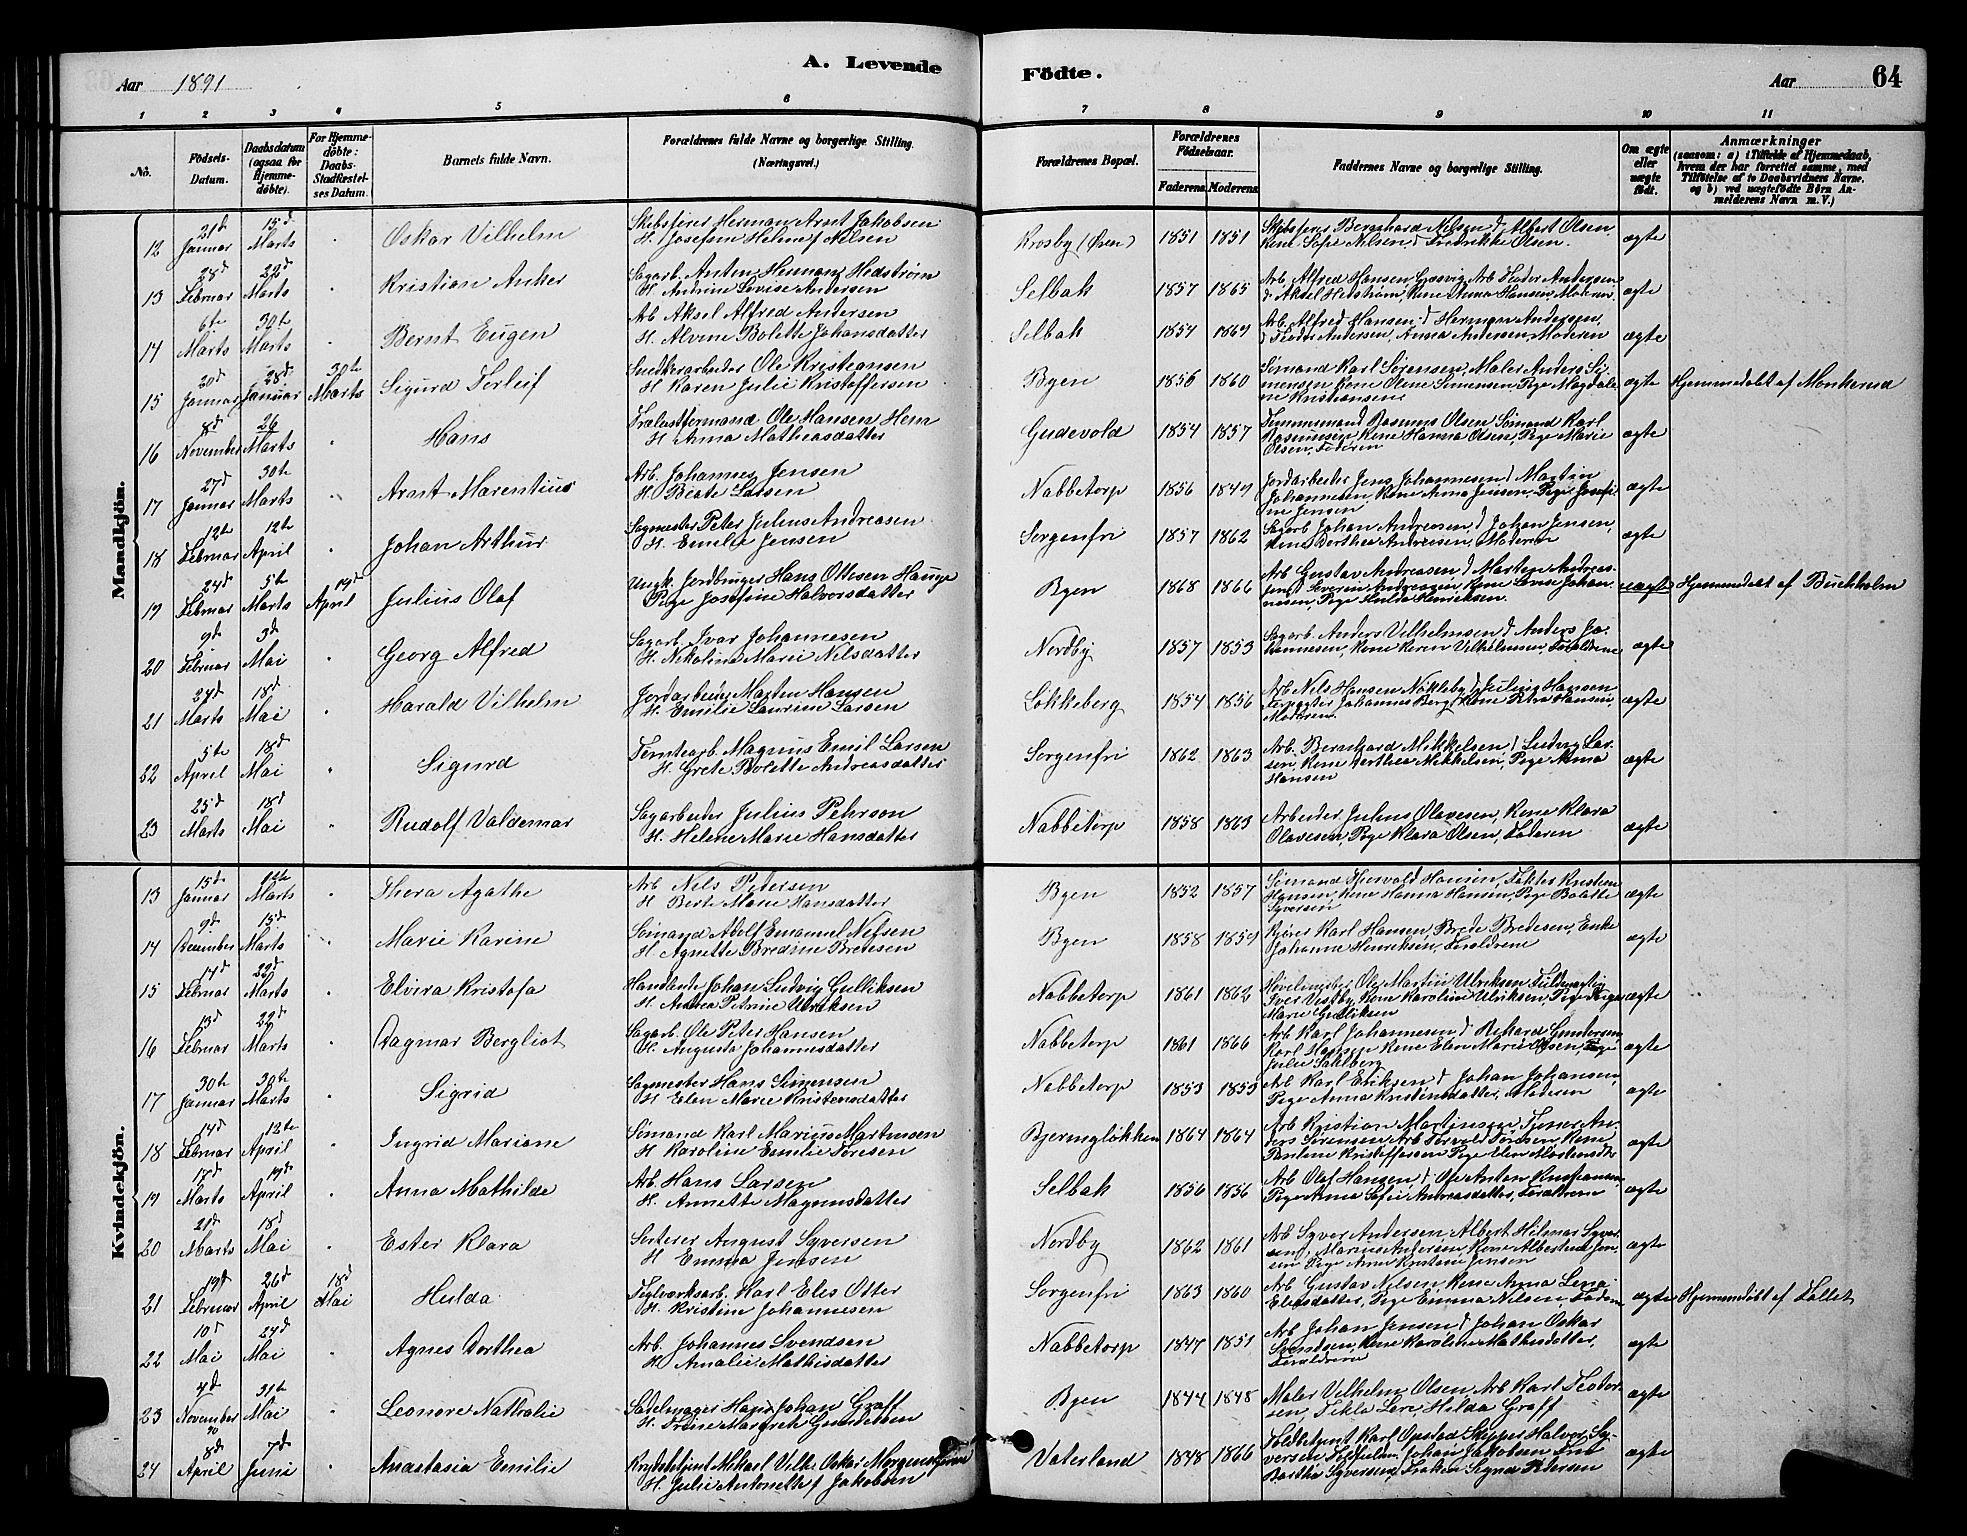 Aar 1891
A. Levende
Födte.
Aar
64
1 2 3 4 5 6 7 8 9 10 11
No.
Födsels-
Datum.
Daabsdatum
(ogsaa for
Hjemme-
döbte).
For Hjemme-
döbte:
Daabs-
Stadfæstel-
ses Datum.
Barnets fulde Navn.
Forældrenes fulde Navne og borgerlige Stilling.
(Næringsvei.)
Forældrenes Bopæl.
Forældrenes
Födselsaar.
Faderens. Moderens.
Faddernes Navne og borgerlige Stilling.
Om ægte
eller
uægte
født.
Anmærkninger
(saasom: a) i Tilfælde af Hjemmedaab,
hvem der har forrettet samme, med
Tilföielse af to Daabsvidners Navne,
og b) ved uægtefödte Börn An-
melderens Navn m. V.)
Mandkjön.
12 21d Januar 15d Marts Oskar Vilhelm
Skibsfører Herman Arnt Jakobsen
H. Josefine Helene f Nelsen
Krosby (Øen) 1851 1851
Skibsfører Berenhard Nelsen d Albert Olsen
Kone Sofie Nelsen d Fredrikke Olsen
ægte
13 28d Februar 22d Marts Kristian Anker
Sagarb. Anton Herman Hedstrøm
H. Andrine Lovise Andersen
Selbak 1857 1865
Arb. Alfred Hansen Arb Teodor Andersen
d Aksel Hedstrøm, Kone Anna Hansen, Moderen
ægte
14 6te Marts 30te Marts Bernt Eugen
Arb Aksel Alfred Andersen
H. Alvine Bolette Johansdatter
Selbak 1854 1864
Arb. Alfred Hansen d Herman Andersen,
d Teodor Andersen, Anna Andersen, Moderen
ægte
15 20d Januar 28d Januar 30te Marts Sigurd Torleif
Snedkerarbeider Ole Kristiansen
H Karen Julie Kristoffersen
Byen 1856 1860
Sømand Karl Sørensen, Maler Anders Si-
mensen Kone Oline Simensen, Pige Magdale-
ne Kristiansen
ægte Hjemmedøbt af Monkerud
16 8d November 26 Marts Hans
Trælastformand Ole Hansen Hem
H Anna Matheasdatter
Gudevold 1854 1857
Tømmermand Rasmus Olsen Sømand Karl
Rasmussen, Kone Hanna Olsen, Pige Marie
Olsen, Faderen
ægte
17 27d Januar 30te Marts Arnt Marentius
Arb. Johannes Jensen
H. Beate Larsen
Nabbetorp 1856 1849
Jordarbeider Jens Johannesen d Martin
Johannesen, Kone Anna Jensen, Pige Josefi-
ne Jensen
ægte
18 12te Februar 12te April Johan Arthur
Sagmester Peter Julius Andreasen
H. Emelie Jensen
Sorgenfri 1857 1862
Sagarb Johan Andreasen d Johan Jensen,
Kone Dorthea Andreasen, Moderen
ægte
19 24d Februar 5te Marts 19d April Julius Olaf
Ungk. Jordbruger Hans Ottesen Hauge
Pige Josefine Halvorsdatter
Byen 1868 1866
Arb Gustav Andreasen d Martin Andreas-
sen d Severin Andreasen, Kone Lovise Johan-
nesen, Pige Hulda Henriksen.
uægte Hjemmedøbt af Buckholm
20 9d Februar 3d Mai Georg Alfred
Sagarb. Ivar Johannesen
H. Nikoline Marie Nilsdatter
Nordby 1857 1853
Sagarb. Anders Vilhelmsen d Anders Jo-
hannesen, Kone Karen Vilhelmsen, Forældrene
ægte
21 24d Marts 18d Mai Harald Vilhelm
Jordarbeider Marten Hansen
H. Emilie Laurine Larsen
Løkkeberg 1854 1856
Arb Nels Hansen Nøkleby d Julius Hansen
Forpagter Johannes Berg, Kone Petra Hansen,
Moderen.
ægte
22 5te April 18d Mai Sigurd
Tomtearb. Magnus Emil Larsen
H. Grete Bolette Andreasdatter
Sorgenfri 1862 1863
Arb. Bernhard Mikkelsen, d Ludvig Lar-
sen, Kone Dorthea Mikkelsen, Pige Anna
Hansen
ægte
23 25d Marts 18d Mai Rudolf Valdemar
Sagarbeider Julius Pehrson
H. Helene Marie Hansdatter
Nabbetorp 1858 1863
Arbeider Julius Olavesen, Kone Klara
Olavesen, Pige Klara Olsen, Faderen
ægte
Kvindekjön.
13 15d Januar Marts Thora Agathe
Arb Nels Petersen
H Berte Marie Hansdatter
Byen 1852 1857
Sømand Torvald Hansen,
Hansen, Kone Hanna Hansen, Pige Bolette
Syversen
ægte
14 9d December 15d Marts Marie Karine
Sømand Adolf Emanuel Nilsen
H. Agnette Bredine Bredesen
Byen 1858 1859
Karl Hansen, Brede Bredesen, Enke
Johanne Henriksen, Forældrene
ægte
15 14d Februar 22d Marts Elvira Kristofa
Handlende Johan Ludvig Gulliksen
H. Andrea Petrine Ulriksen
Nabbetorp 1861 1862
Høvelmester Ole Martin Ulriksen,
Iver Vestby, Kone Karoline Ulriksen, Pige
Marie Gulliksen
ægte
16 13d Februar 22d Marts Dagmar Bergliot
Sagarb. Ole Peter Hansen
H. Augusta Johannesdatter
Nabbetorp 1861 1866
Arb Karl Johannesen d Richard Gundersen,
Karl Hansen, Kone Elen Marie Olsen, Pige
Julie Dahlberg
ægte
17 30te Januar 30te Marts Sigrid
Sagmester Hans Simensen
H Elen Marie Kristensdatter
Nabbetorp 1853 1859
Arb Karl Eriksen d Johan Johansen,
Pige Anna Kristensdatter, Moderen
ægte
18 14d Februar 12te April Ingrid Mariane
Sømand Karl Marius Martinsen
H Karoline Emilie Toresen
Bjerengløkken 1864 1864
Arb Kristian Martinsen, Tjener An-
ders Sørensen Arb Torvald Toresen, Kone
Pauline Kristoffersen Pige Elen Mortensdtr
ægte
19 17d Marts 19d April Anna Mathilde
Arb. Hans Larsen
H. Annette Magnusdatter
Selbak 1856 1856
Arb Olaf Hansen, d Ole Anton Kristiansen,
Pige Anna Sofie Andreasdatter, Forældrene
ægte
20 21d Marts 18d Mai Ester Klara
Sorterer August Syversen
H Emma Jensen
Nordby 1862 1861
Arb Syver Andersen, Albert Hilmar Syver-
sen, Marius Andersen, Kone Albertine Jen-
sen Pige Anne Kristiane Jensen
ægte
21 19d Februar 26d April 18d Mai Hulda
Teglverksarb. Karl Elis Otter
H. Kristine Johannesen
Sorgenfri 1863 1860
Arb Gustav Nilsen, Kone Anna Lena
Elensdatter, Pige Emma Nilsen, Faderen
ægte Hjemmedøbt af Follet
22 10d Mai 24d Mai Agnes Dorthea
Arb. Johannes Svendsen
H. Amalie Mathisdatter
Nabbetorp 1847 1851
Arb Johan Jensen d Johan Oskar
Svendsen, Kone Karoline Mathisdatter,
Forældrene
ægte
23 4d November 90 31te Mai Leonore Nathalie
Sadelmager Hans Johan Graff
H. Trine Margrete Gundersen
Byen 1844 1848
Maler Vilhelm Olsen, Arb Karl Teodor-
sen, Tekla Lere, Hilda Graff
ægte
24 8d April 7d Juni Anastasia Emilie
Krydsbetjent Mikael Vilh. Oskar Morgenstjerne
H. Julie Antonette f Jakobsen
Vaterland 1848 1866
Toldbetjent Karl Opstad Skipper Halvor Sy-
versen, Johan Jakobsen Fru
Barthe Syversen, Frøken Signe Petersen
ægte